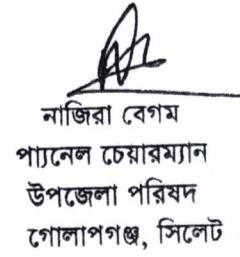 নাজিরা বেগম
প্যানেল চেয়ারম্যান
উপজেলা পরিষদ
গোলাপগঞ্জ, সিলেট